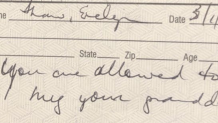 ne Shaw, Evelyn Date 3/1
State Zip Age
You are allowed to
hug your grandd